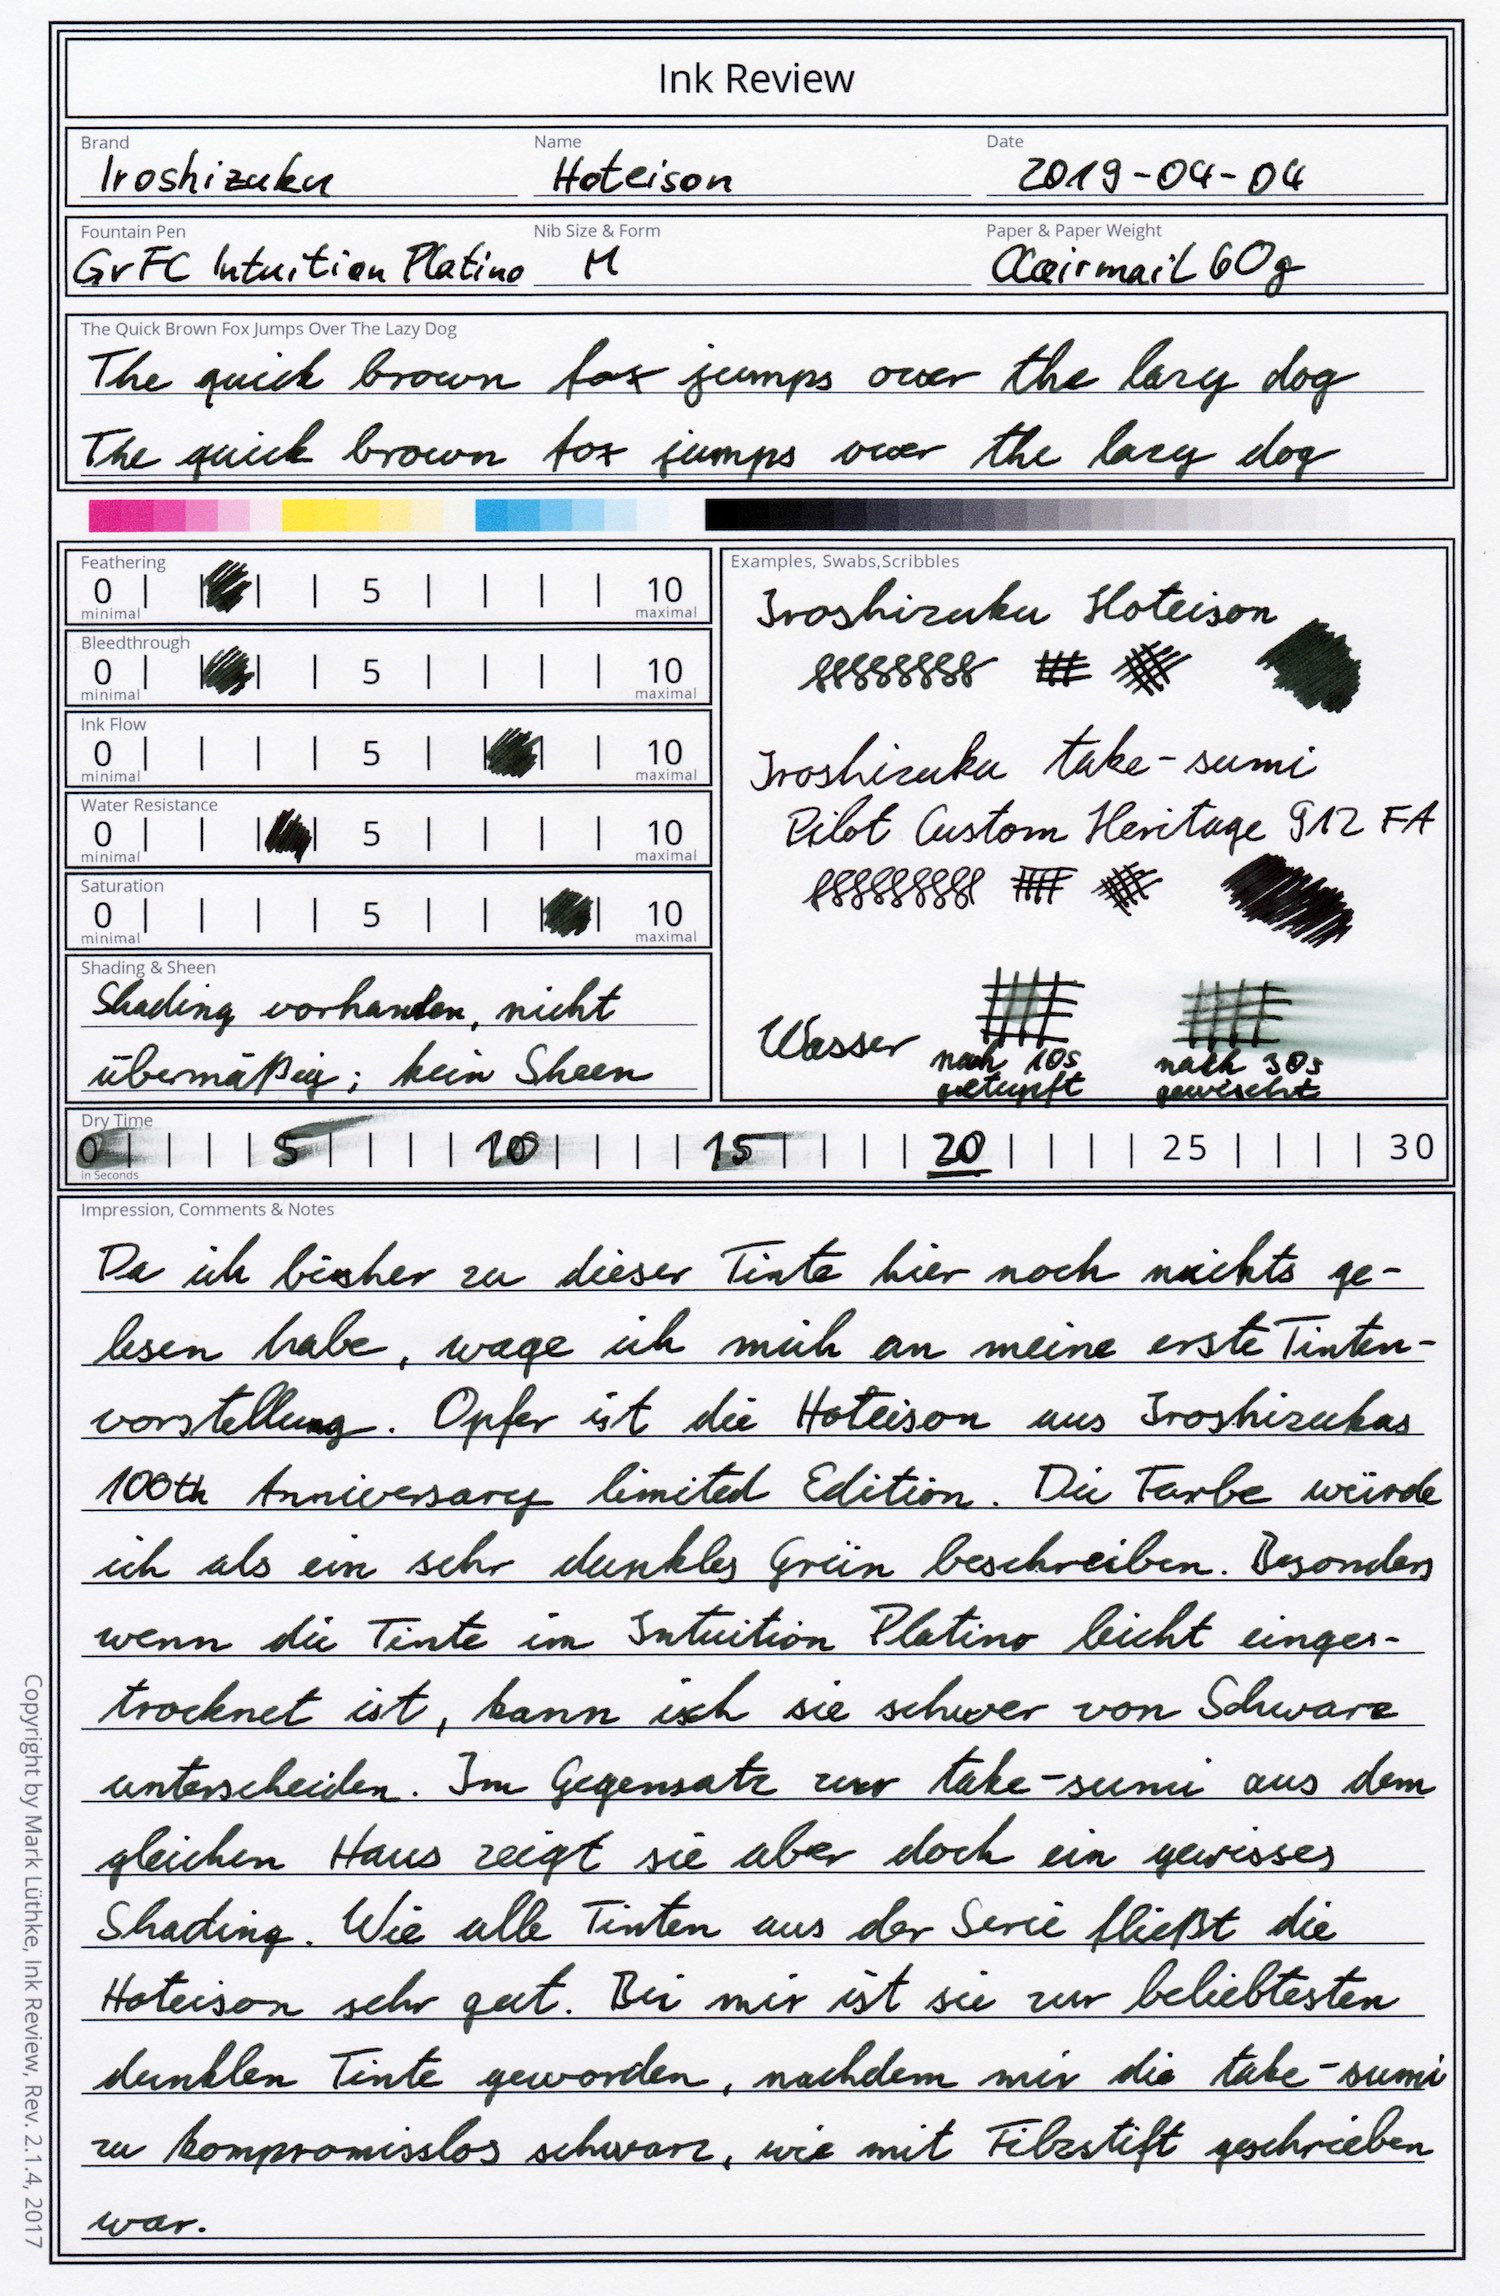 Ink Review
Brand Name Date
Iroshizuku Hoteison 2019-04-04
Fountain Pen Nib Size & Form Paper & Paper Weight
GvFC Intuition Platino M Xairmail 60g
The Quick Brown Fox Jumps Over The Lazy Dog
The quick brown fox jumps over the lazy dog
The quick brown fox jumps over the lazy dog
Feathering
0 5 10
minimal maximal
Bleedthrough
0 5 10
minimal maximal
Ink Flow
0 5 10
minimal maximal
Water Resistance
0 5 10
minimal maximal
Saturation
0 5 10
minimal maximal
Shading & Sheen
Shading vorhanden, nicht
übermäßig; kein Sheen
Examples, Swabs,Scribbles
Iroshizuku Hoteison
Iroshizuku take-sumi
Pilot Custom Heritage 912 FA
Wasser
nach 10s
getupft
nach 30s
gewischt
Dry Time
0 5 10 15 20 25 30
in Seconds
Impression, Comments & Notes
Da ich bisher zu dieser Tinte hier noch nichts ge-
lesen habe, wage ich mich an meine erste Tinten-
vorstellung. Opfer ist die Hoteison aus Iroshizukas
100th Anniversary limited Edition. Die Farbe würde
ich als ein sehr dunkles Grün beschreiben. Besonders
wenn die Tinte im Intuition Platino leicht einge-
trocknet ist, kann ich sie schwer von Schwarz
unterscheiden. Im Gegensatz zur take-sumi aus dem
gleichen Haus zeigt sie aber doch ein gewisses
Shading. Wie alle Tinten aus der Serie fließt die
Hoteison sehr gut. Bei mir ist sie zur beliebtesten
dunklen Tinte geworden, nachdem mir die take-sumi
zu kompromisslos schwarz, wie mit Filzstift geschrieben
war.
Copyright by Mark Lüthke, Ink Review, Rev. 2.1.4, 2017